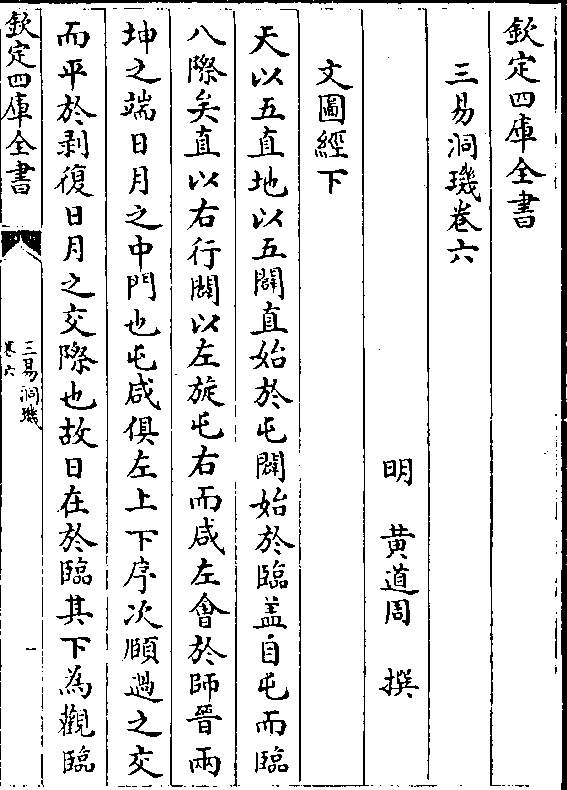 欽定四庫全書
三易洞璣卷六
明 黄道周 撰
文圖經下
天以五直地以五闢直始於屯闢始於臨盖自屯而臨
八際矣直以右行闢以左旋屯右而咸左會於師晉兩
坤之端日月之中門也屯咸俱左上下序次頤過之交
而平於剥復日月之交際也故日在於臨其下為觀臨
欽定四庫全書
三易洞璣
卷六
一